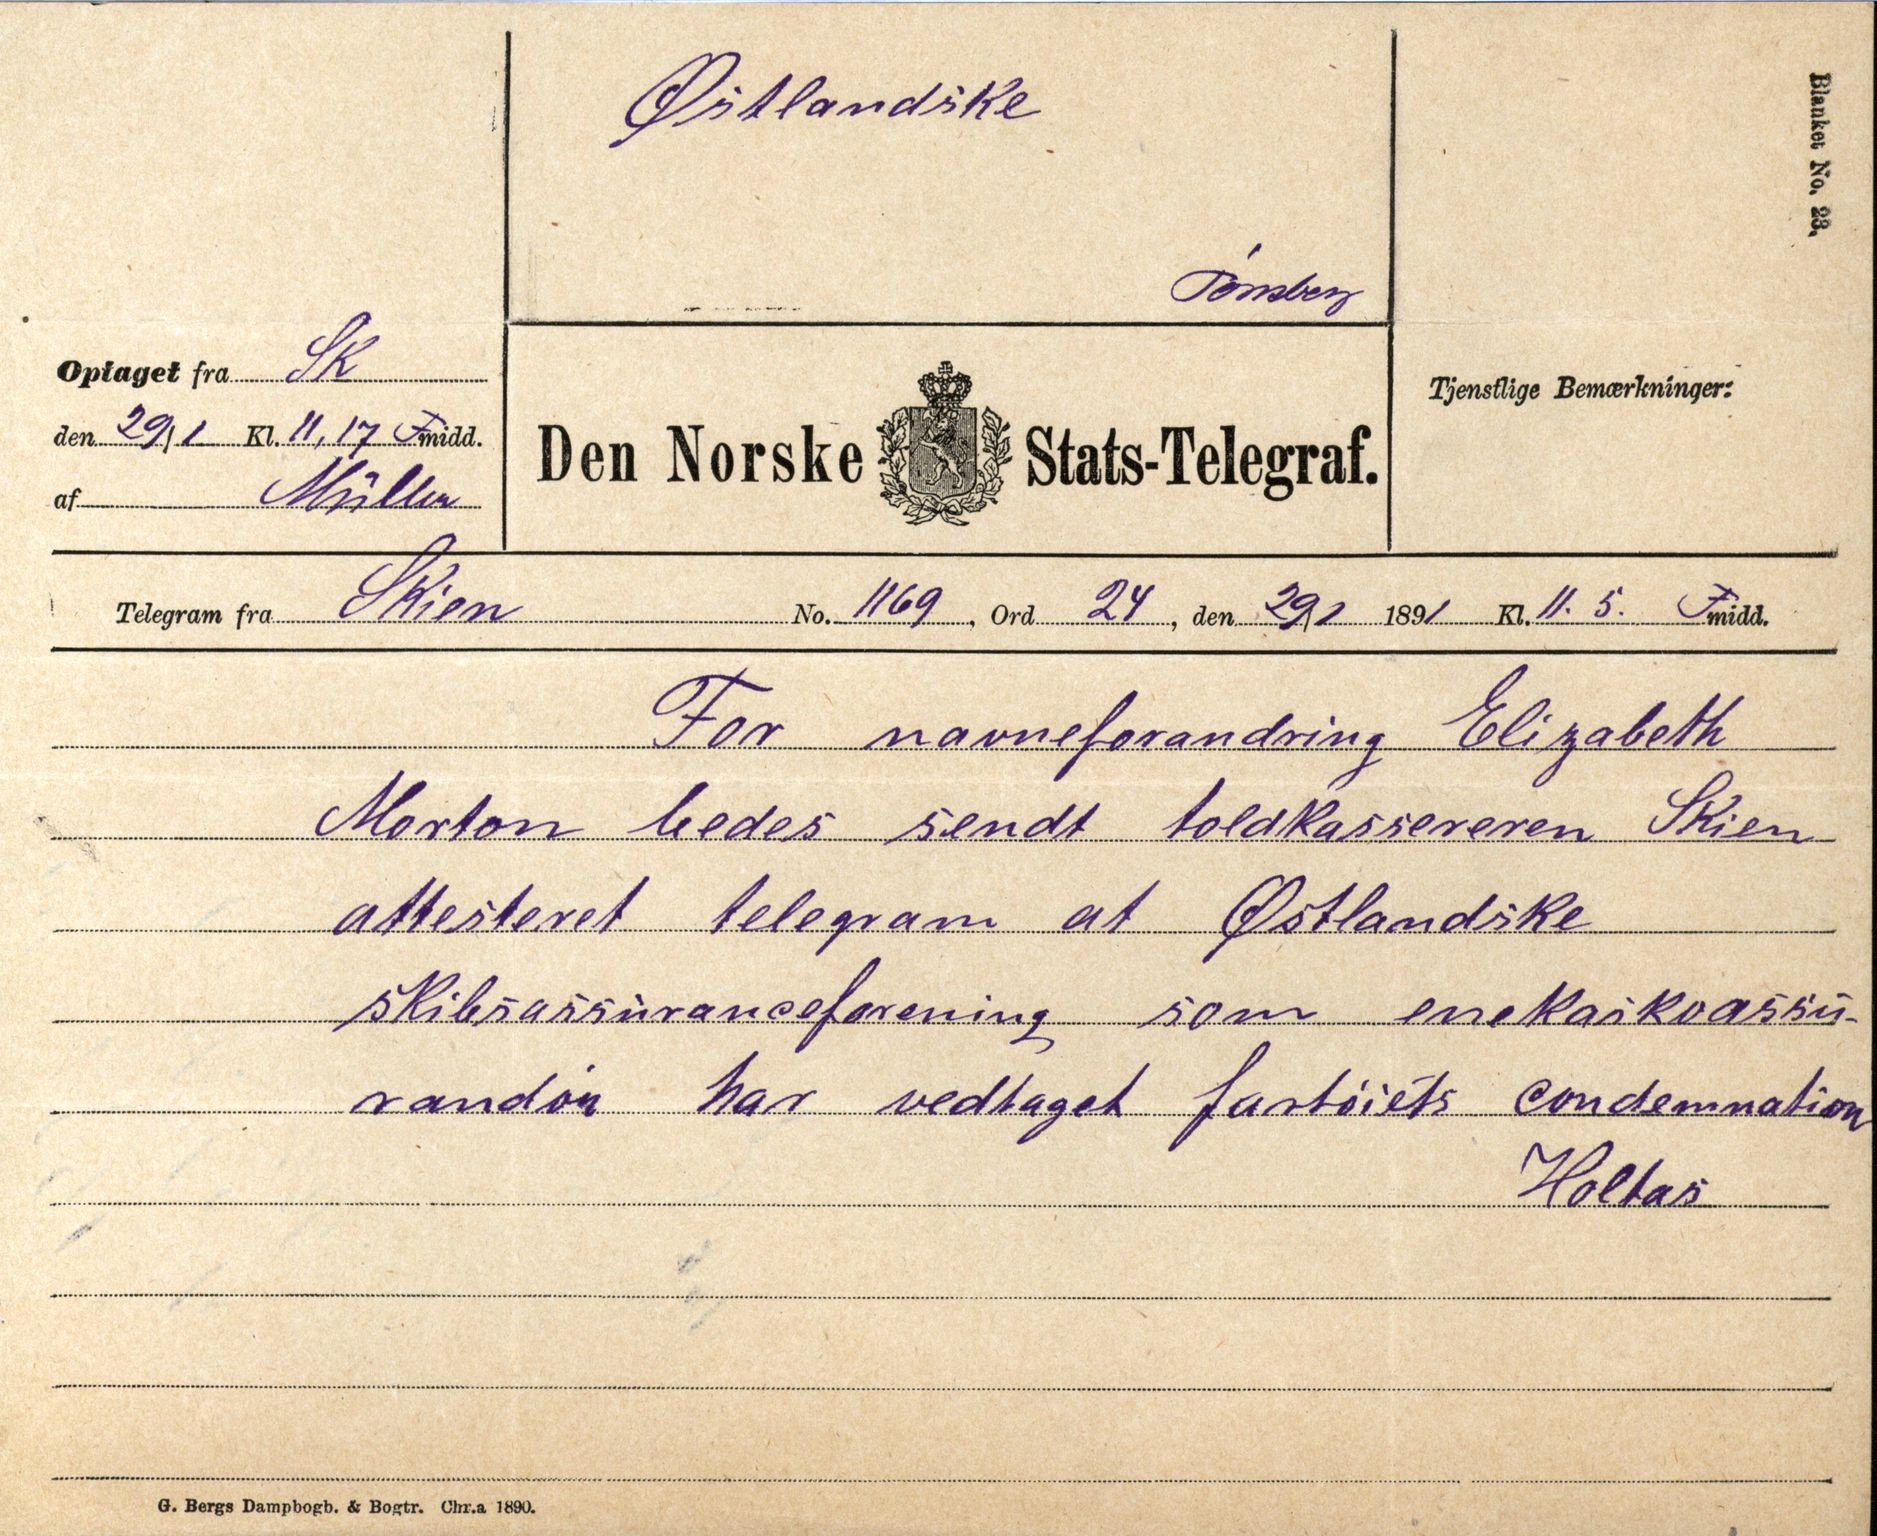 Østlandske
Tønsberg
Blanket No. 23.
Optaget fra SK
den 29/1 Kl. 11,17 Fmidd.
af Müller
Den Norske Stats-Telegraf.
Tjenstlige Bemærkninger:
Telegram fra Skien No. 1169, Ord 24, den 29/1 1891 Kl. 11.5. Fmidd.
For navneforandring Elizabeth
Morton bedes sendt toldkassereren Skien
attesteret telegram at Østlandske
skibsassuranceforening som enekaskoassu-
randör har vedtaget fartöiets condemnation
Holtas
G. Bergs Dampbogb. & Bogtr. Chr.a 1890.